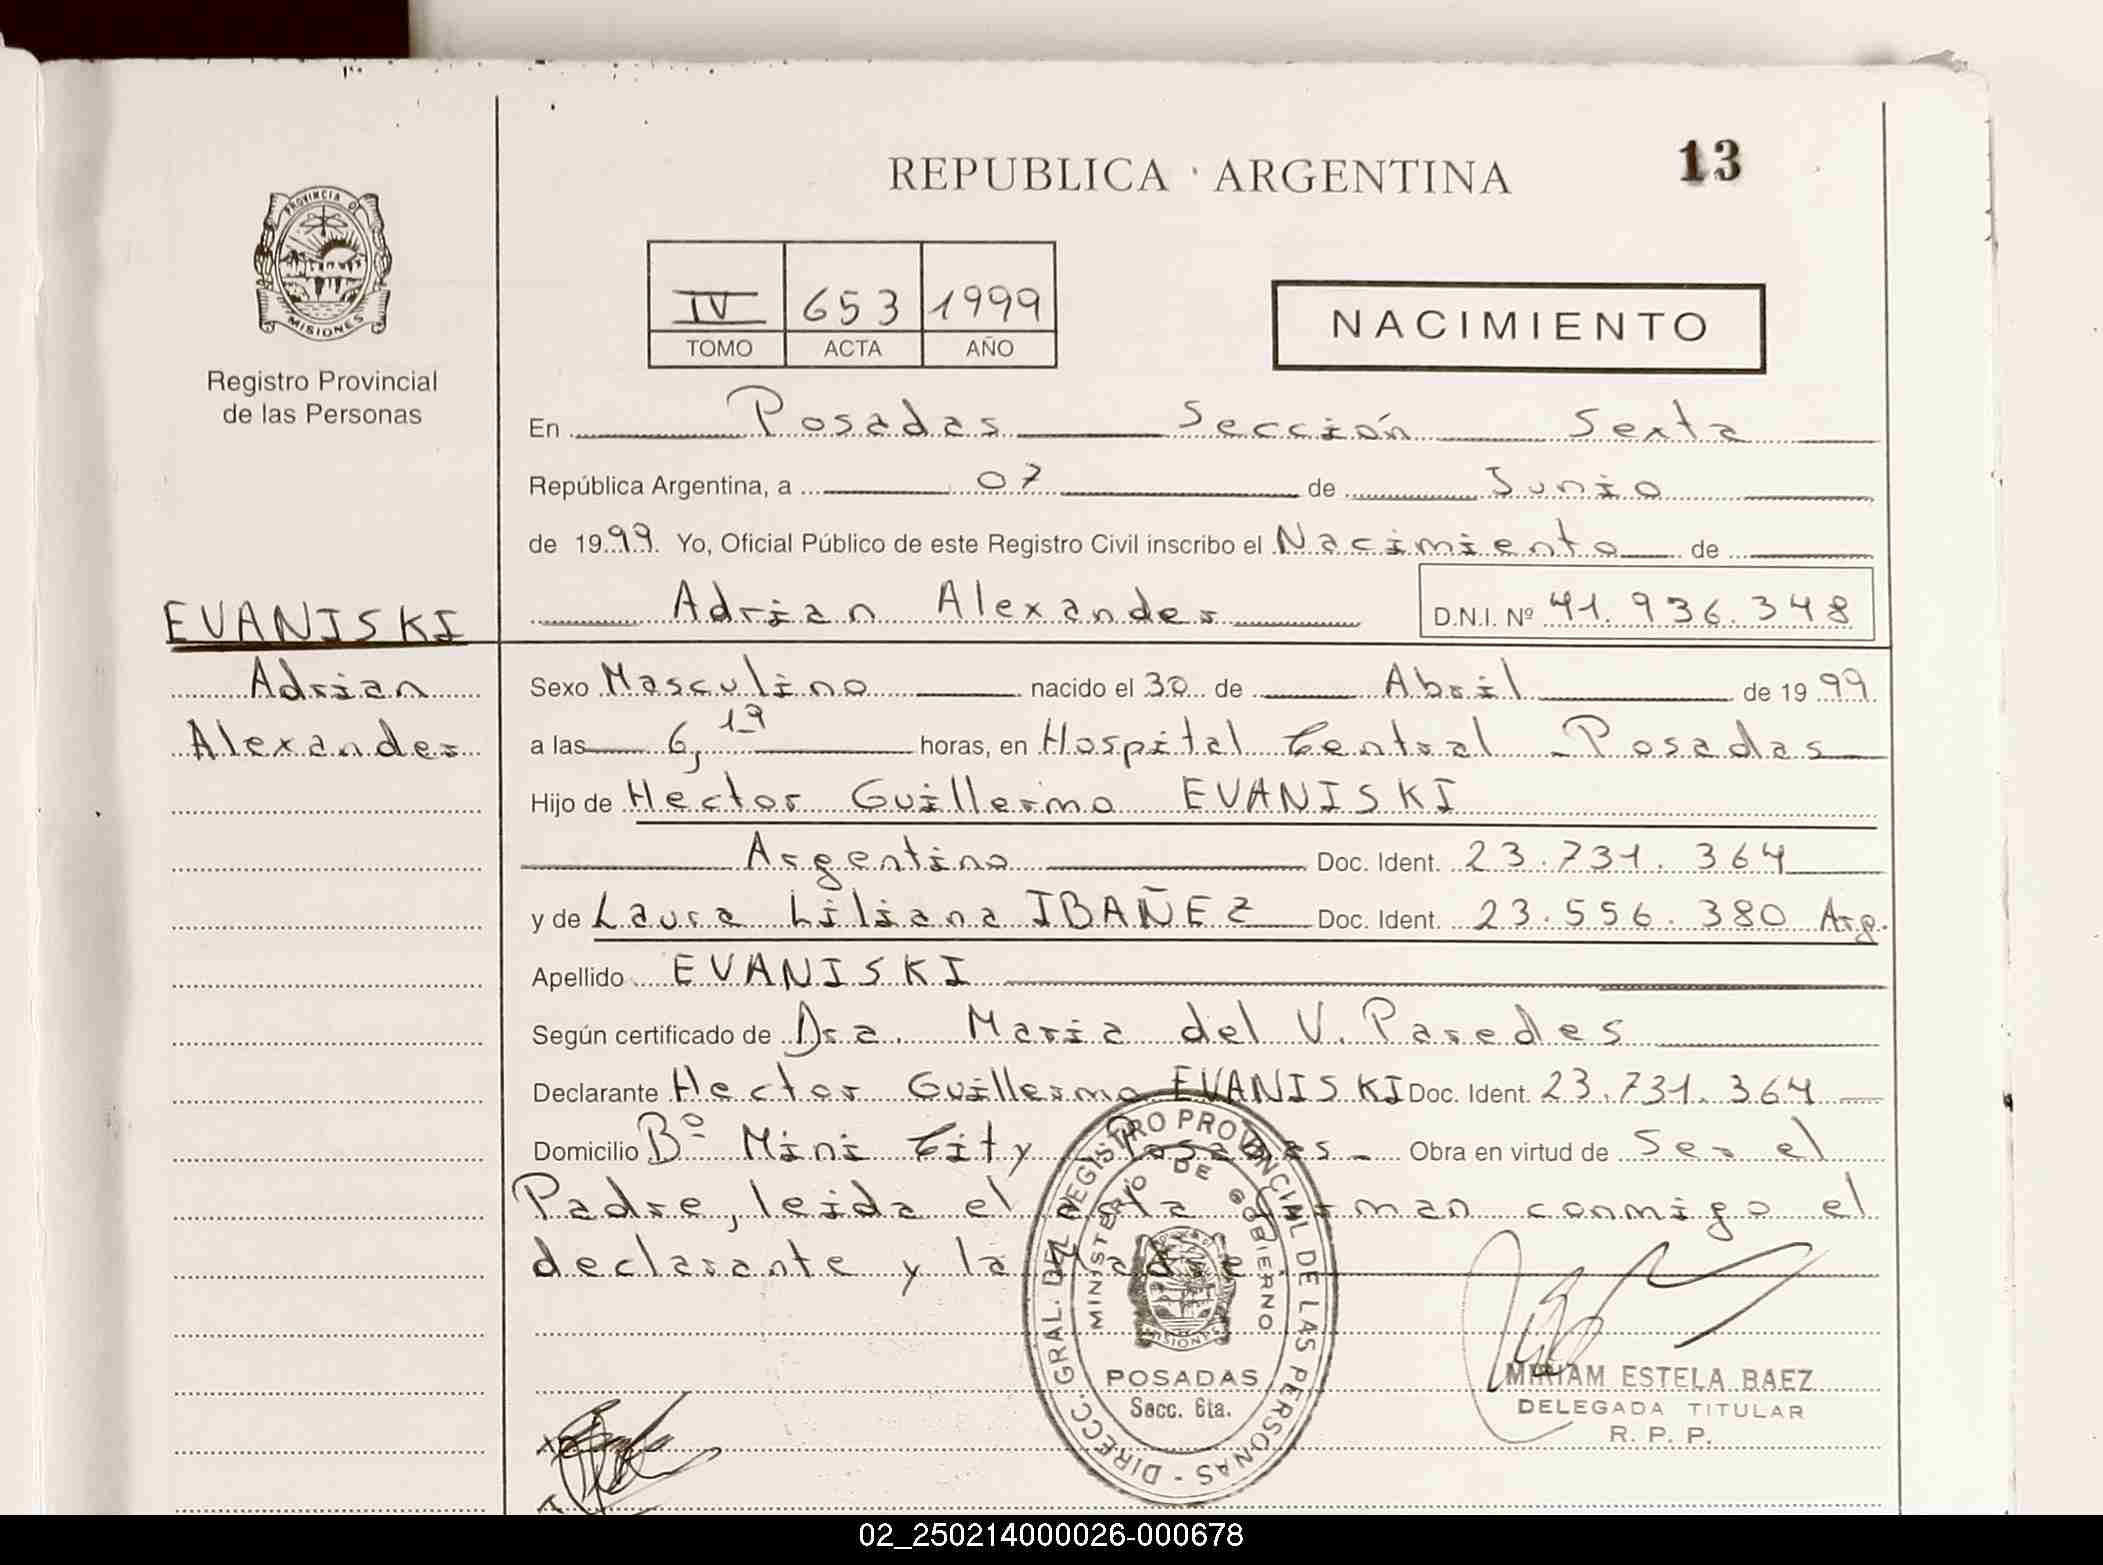 REPUBLICA ARGENTINA
13
PROVINCIA DE
MISIONES
Registro Provincial
de las Personas
IV 653 1999
TOMO ACTA AÑO
NACIMIENTO
En Posadas Sección Sexta
República Argentina, a 07 de Junio
de 1999. Yo, Oficial Público de este Registro Civil inscribo el Nacimiento de
Adrian Alexander D.N.I. Nº 41.936.348
EVANISKI
Adrian
Alexander
Sexo Masculino nacido el 30 de Abril de 1999
a las 6,19 horas, en Hospital Central - Posadas
Hijo de Hector Guillermo EVANISKI
Argentino Doc. Ident. 23.731.364
y de Laura Liliana IBAÑEZ Doc. Ident. 23.556.380 Arg.
Apellido EVANISKI
Según certificado de Dra. Maria del V. Paredes
Declarante Hector Guillermo EVANISKI Doc. Ident. 23.731.364
Domicilio Bº Mini City - Posadas - Obra en virtud de Ser el
Padre, leida el acta firman conmigo el
declarante y la Madre
DIRECC. GRAL. DEL REGISTRO PROVINCIAL DE LAS PERSONAS -
MINISTERIO DE GOBIERNO
MISIONES
POSADAS
Secc. 6ta.
MIRIAM ESTELA BAEZ
DELEGADA TITULAR
R. P. P.
02_250214000026-000678